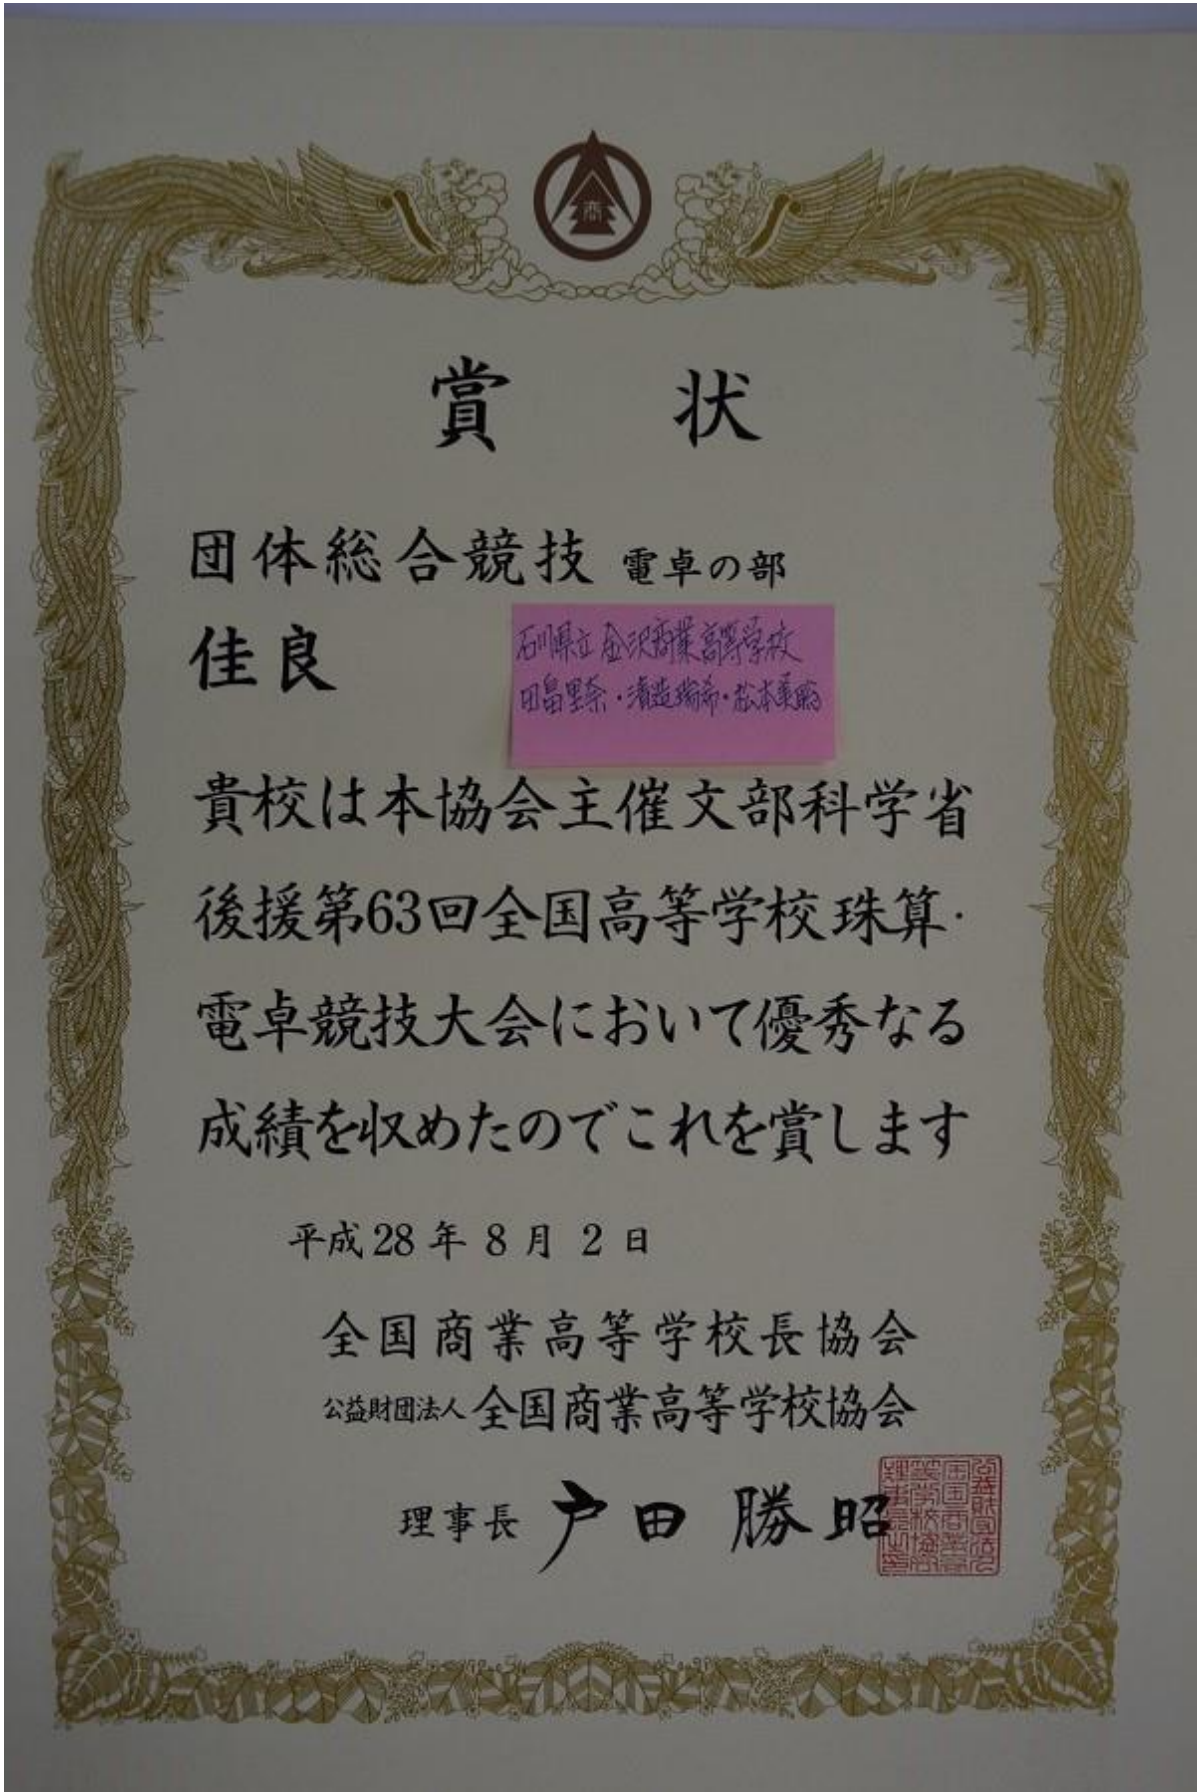 商
賞状
団体総合競技 電卓の部
佳良
石川県立金沢商業高等学校
田畠里奈・清造瑞希・松本
貴校は本協会主催文部科学省
後援第63回全国高等学校珠算・
電卓競技大会において優秀なる
成績を収めたのでこれを賞します
平成28年8月2日
全国商業高等学校長協会
公益財団法人全国商業高等学校協会
理事長 戸田勝昭